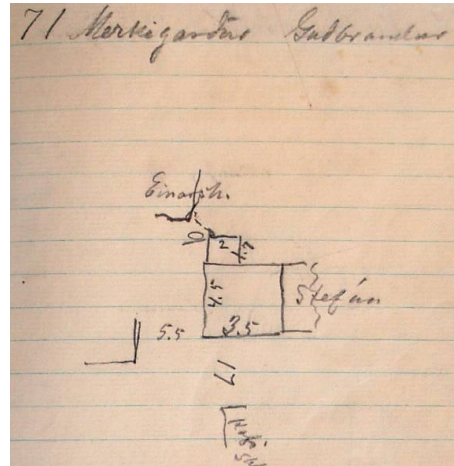 71 Merkigarður Guðbrandur
Einarsh.
10
2
1.7
4.5
Stefán
3.5
5.5
17